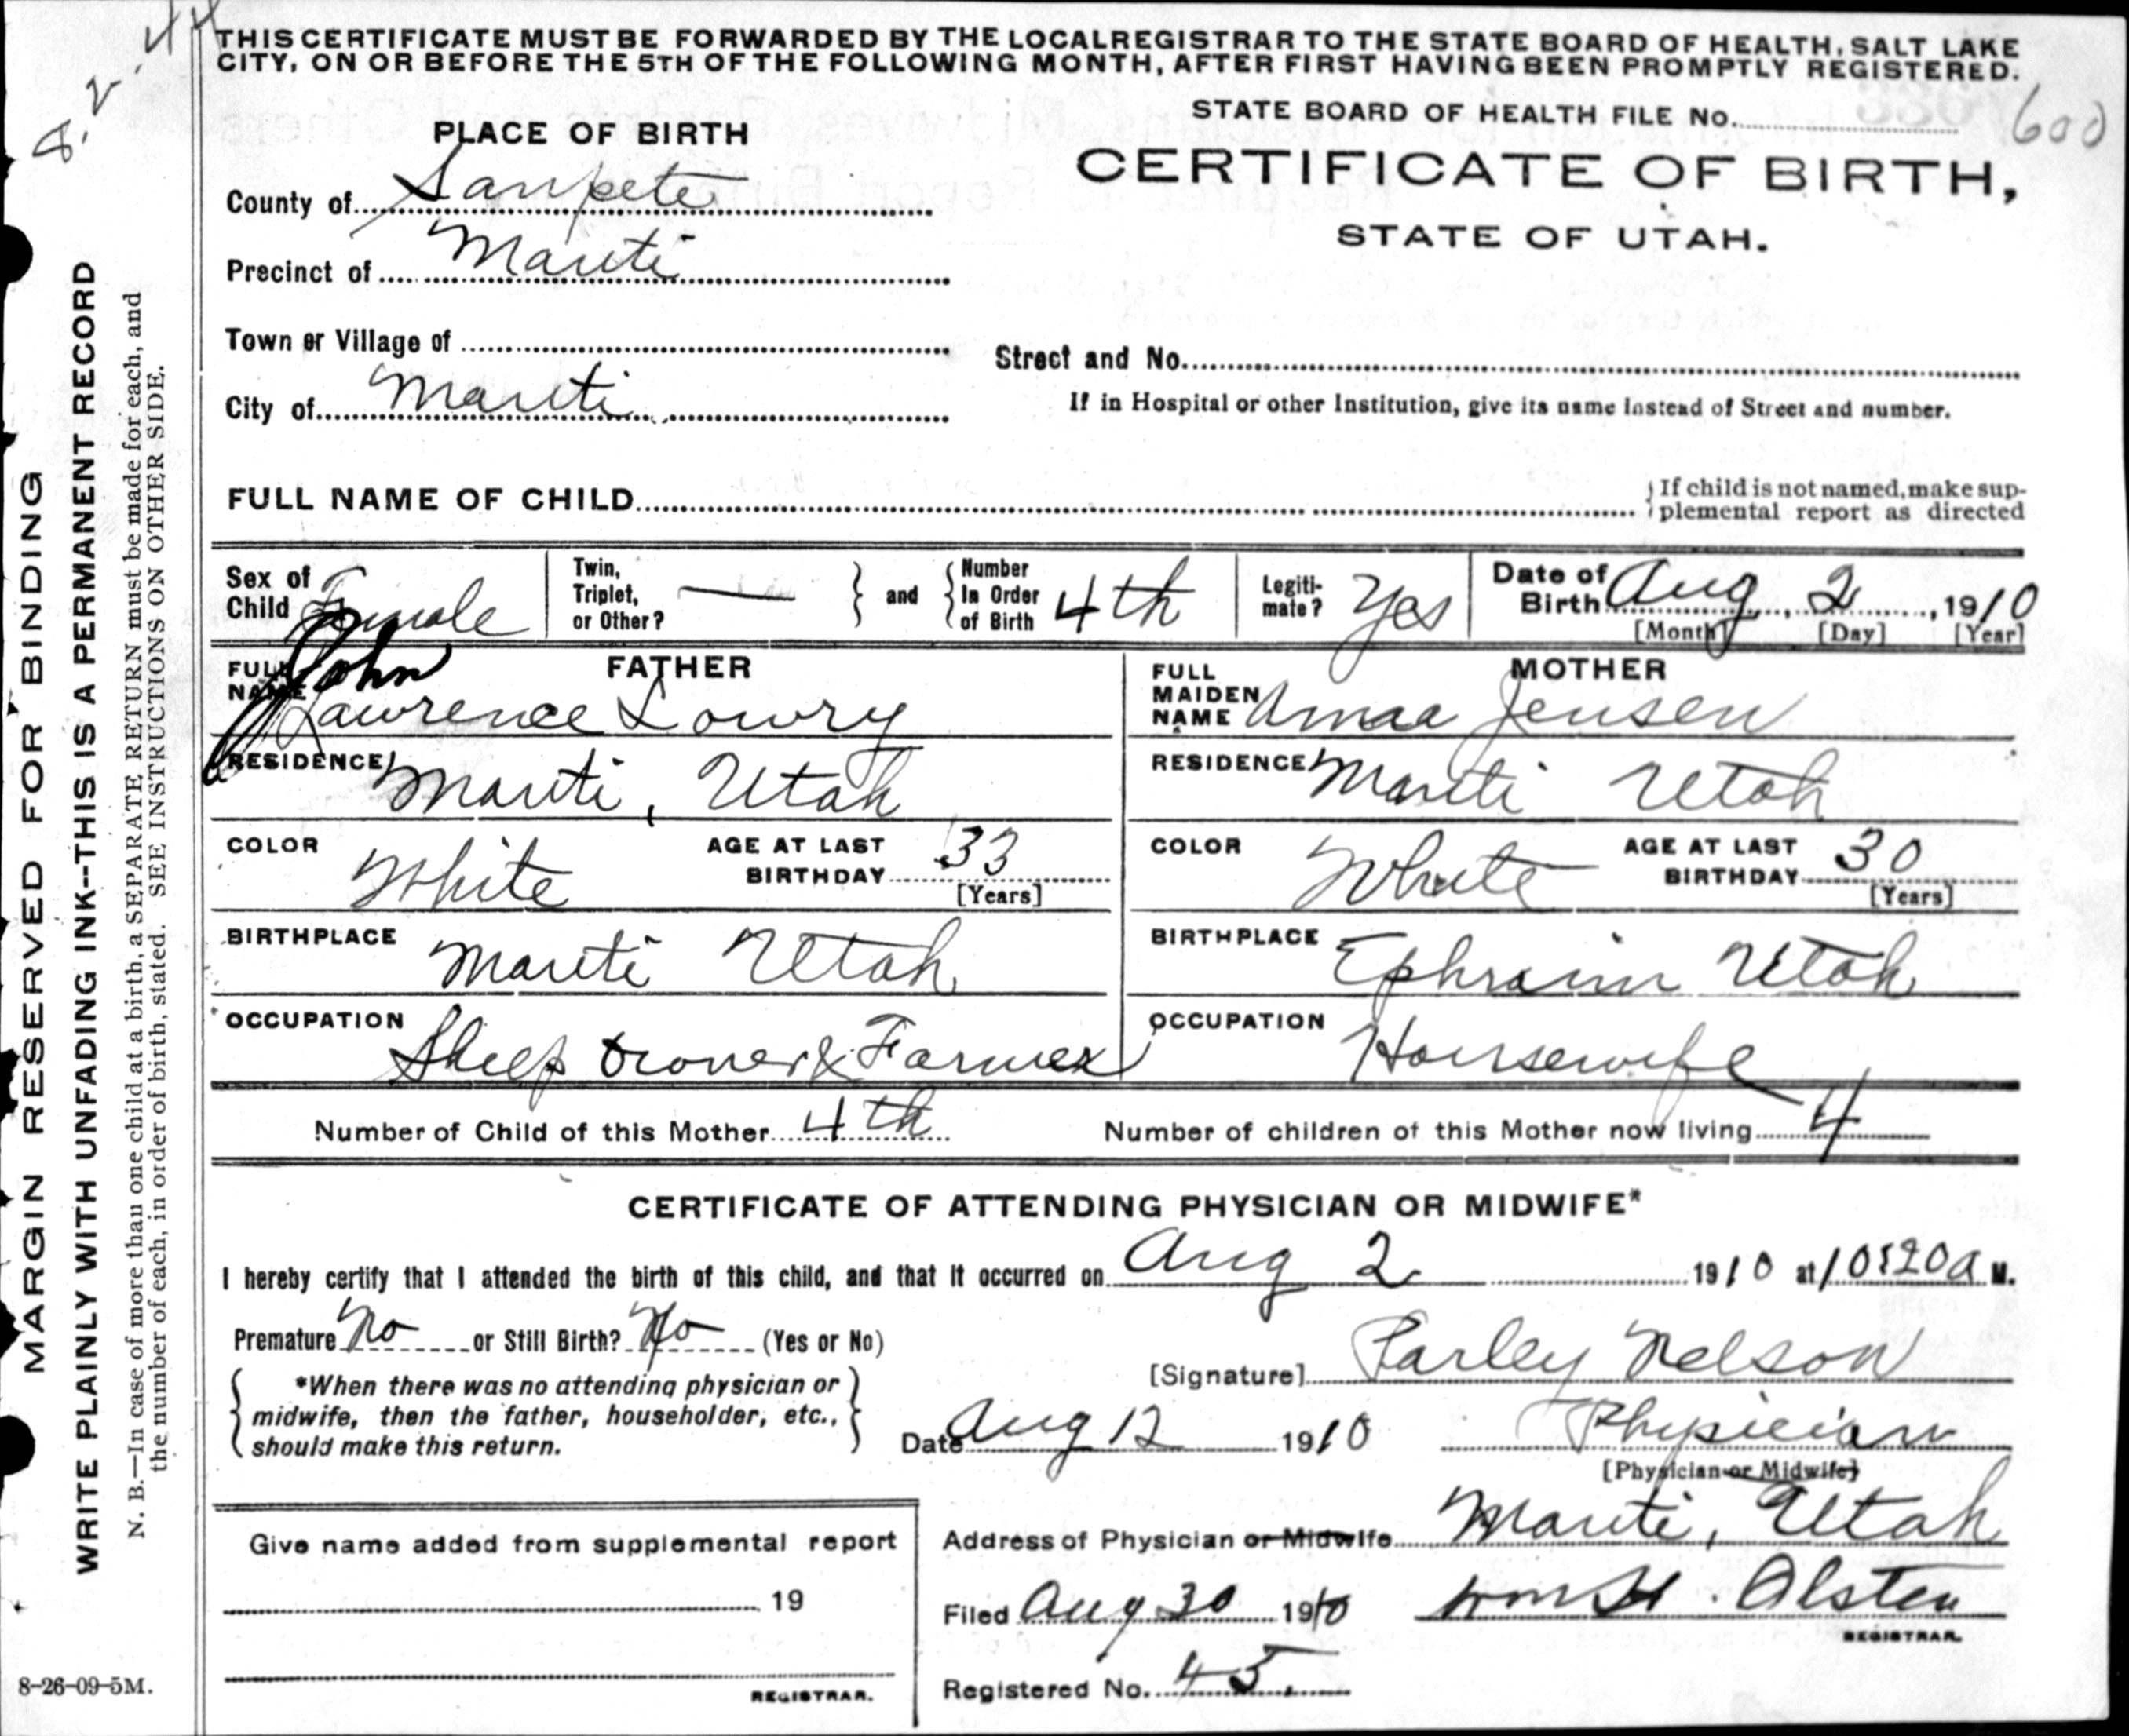 THIS CERTIFICATE MUST BE FORWARDED BY THE LOCAL REGISTRAR TO THE STATE BOARD OF HEALTH, SALT LAKE
CITY, ON OR BEFORE THE 5TH OF THE FOLLOWING MONTH, AFTER FIRST HAVING BEEN PROMPTLY REGISTERED.
STATE BOARD OF HEALTH FILE No. 600
CERTIFICATE OF BIRTH,
STATE OF UTAH.
PLACE OF BIRTH
County of Sanpete
Precinct of Manti
Town or Village of
Street and No.
City of Manti
If in Hospital or other Institution, give its name instead of Street and number.
FULL NAME OF CHILD
If child is not named, make sup-
plemental report as directed
Sex of Child Female
Twin, Triplet, or Other? —
and Number In Order of Birth 4th
Legiti-mate? Yes
Date of Birth Aug 2, 1910
[Month] [Day] [Year]
FATHER
FULL NAME John Lawrence Lowry
RESIDENCE Manti, Utah
COLOR White
AGE AT LAST BIRTHDAY 33
[Years]
BIRTHPLACE Manti Utah
OCCUPATION Sheep Owner & Farmer
MOTHER
FULL MAIDEN NAME Jensen
RESIDENCE Manti Utah
COLOR White
AGE AT LAST BIRTHDAY 30
[Years]
BIRTHPLACE Ephraim Utah
OCCUPATION Housewife
Number of Child of this Mother 4th
Number of children of this Mother now living 4
CERTIFICATE OF ATTENDING PHYSICIAN OR MIDWIFE*
I hereby certify that I attended the birth of this child, and that it occurred on Aug 2 1910 at 10:20 a M.
Premature No or Still Birth? No (Yes or No)
*When there was no attending physician or
midwife, then the father, householder, etc.,
should make this return.
[Signature] Parley Nelson
Date Aug 12 1910
Physician
[Physician or Midwife]
Address of Physician or Midwife Manti, Utah
Filed Aug 30 1910 Wm H. Alsten
REGISTRAR.
Registered No. 45.
Give name added from supplemental report
19
REGISTRAR.
MARGIN RESERVED FOR BINDING
WRITE PLAINLY WITH UNFADING INK--THIS IS A PERMANENT RECORD
N. B.—In case of more than one child at a birth, a SEPARATE RETURN must be made for each, and
the number of each, in order of birth, stated. SEE INSTRUCTIONS ON OTHER SIDE.
8-26-09-5M.